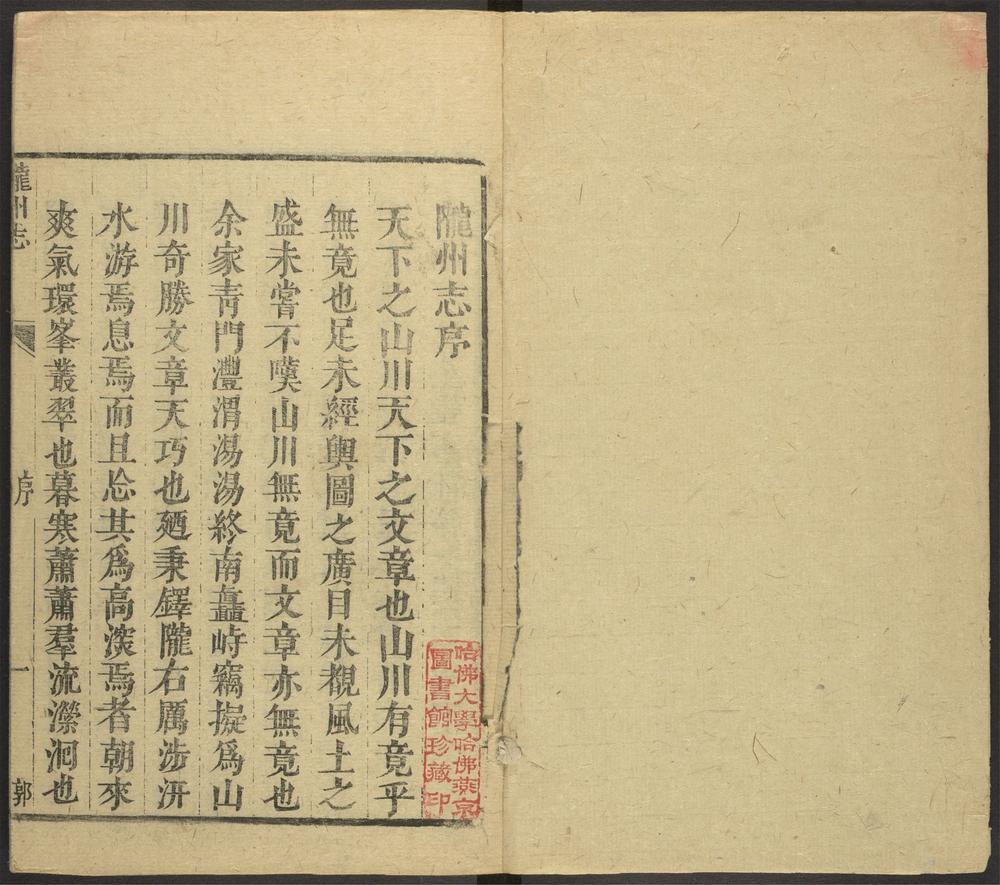 隴州志序
天下之山川天下之文章也山川有竟乎
無竟也足未經輿圖之廣目未覩風土之
盛未嘗不嘆山川無竟而文章亦無竟也
余家青門灃渭湯湯終南矗峙竊擬爲山
川奇勝文章天巧也廼秉鐸隴右厲涉汧
水游焉息焉而且忩其爲高深焉者朝來
爽氣環峯叢翠也暮寒蕭蕭羣流瀠洄也
隴州志
序
一
郭
哈佛大學哈佛燕京
圖書館珍藏印